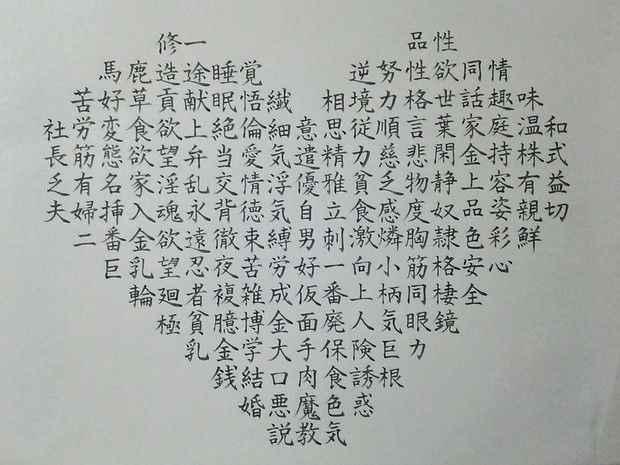 修一 品性
馬鹿造途睡覚 逆努性欲同情
苦好草貢献眠悟繊 相境力格世話趣味
社労変食欲上絶倫細意思従順言葉家庭温和
長筋態欲望弁当愛気遣精力慈悲閑金持株式
乏有名家淫乱交情浮優雅貧乏物静上容有益
夫婦挿入魂氷背徳気自立食感度奴品姿親切
二番金欲遠徹束縛男刺激燐胸隷色彩鮮
巨乳望忍夜苦労好一向小筋格安心
輪廻者複雑成仮番上柄同棲全
極貧臆博金面廃人気眼鏡
乳金学大手保険巨力
銭結口肉食誘根
婚悪魔色惑
説教気